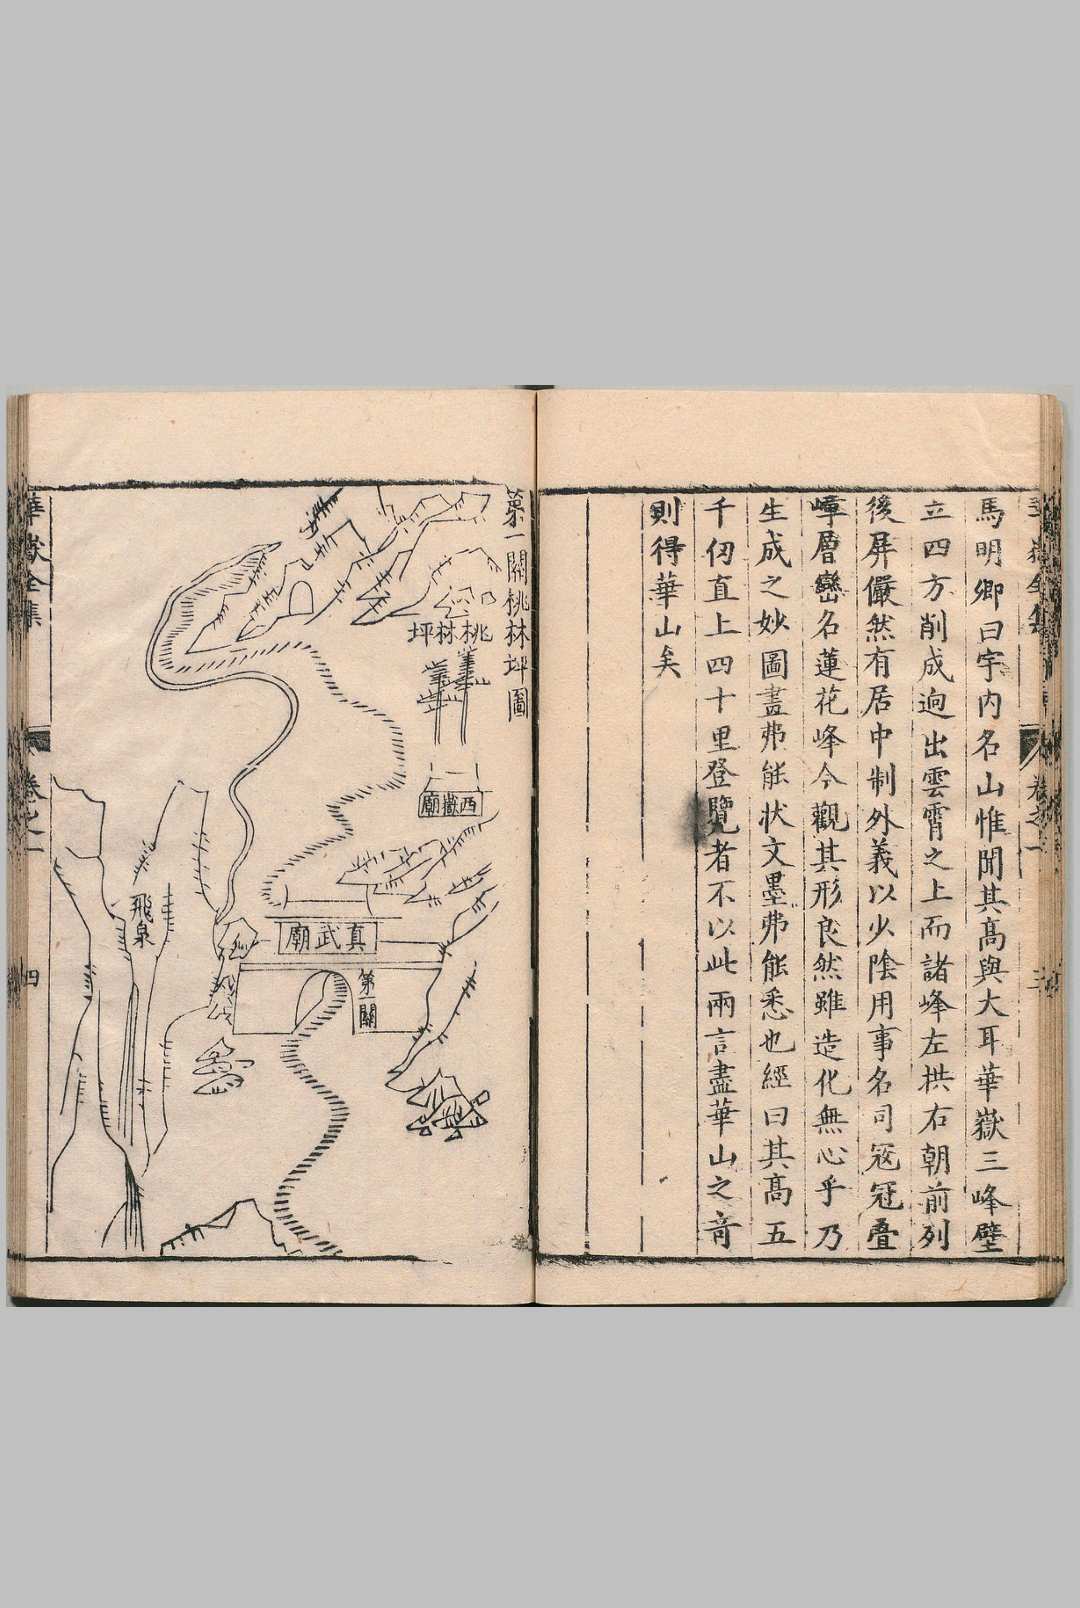 馬明卿曰宇内名山惟聞其高與大耳華嶽三峰壁
立四方削成逈出雲霄之上而諸峰左拱右朝前列
後屏儼然有居中制外義以少陰用事名司寇冠疊
嶂層巒名蓮花峰今觀其形良然雖造化無心乎乃
生成之妙圖畫弗能状文墨弗能悉也經曰其高五
千仞直上四十里登覽者不以此兩言盡華山之竒
則得華山矣
第一關桃林坪圖
桃林坪
西嶽廟
真武廟
第一關
飛泉
華嶽全集
卷之一
四